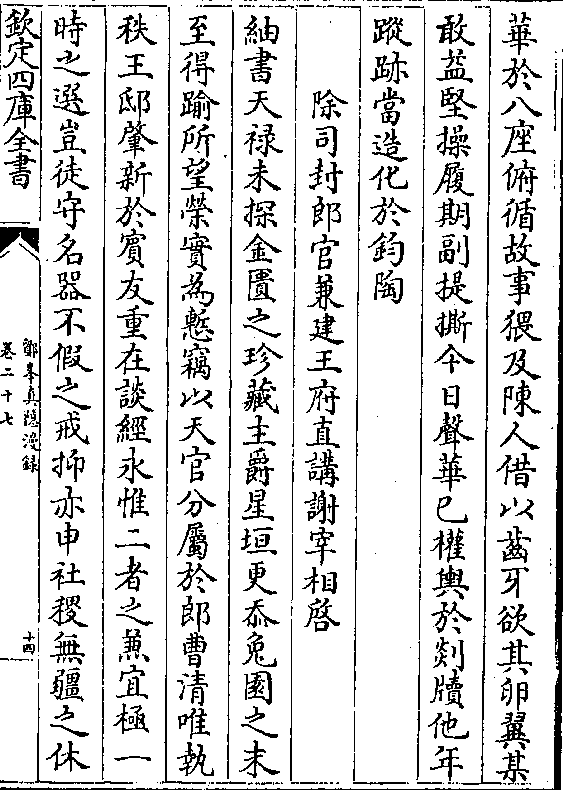 華於八座俯循故事猥及陳人借以齒牙欲其卵翼某
敢益堅操履期副提撕今日聲華已權輿於剡牘他年
蹤跡當造化於鈞陶
除司封郎官兼建王府直講謝宰相啓
紬書天禄未探金匱之珍藏主爵星垣更忝兔園之末
至得踰所望榮實為慙竊以天官分屬於郎曹清唯執
秩王邸肇新於賓友重在談經永惟二者之兼宜極一
時之選豈徒守名器不假之戒抑亦申社稷無疆之休
欽定四庫全書
鄮峯真隱漫録
卷二十七
十四